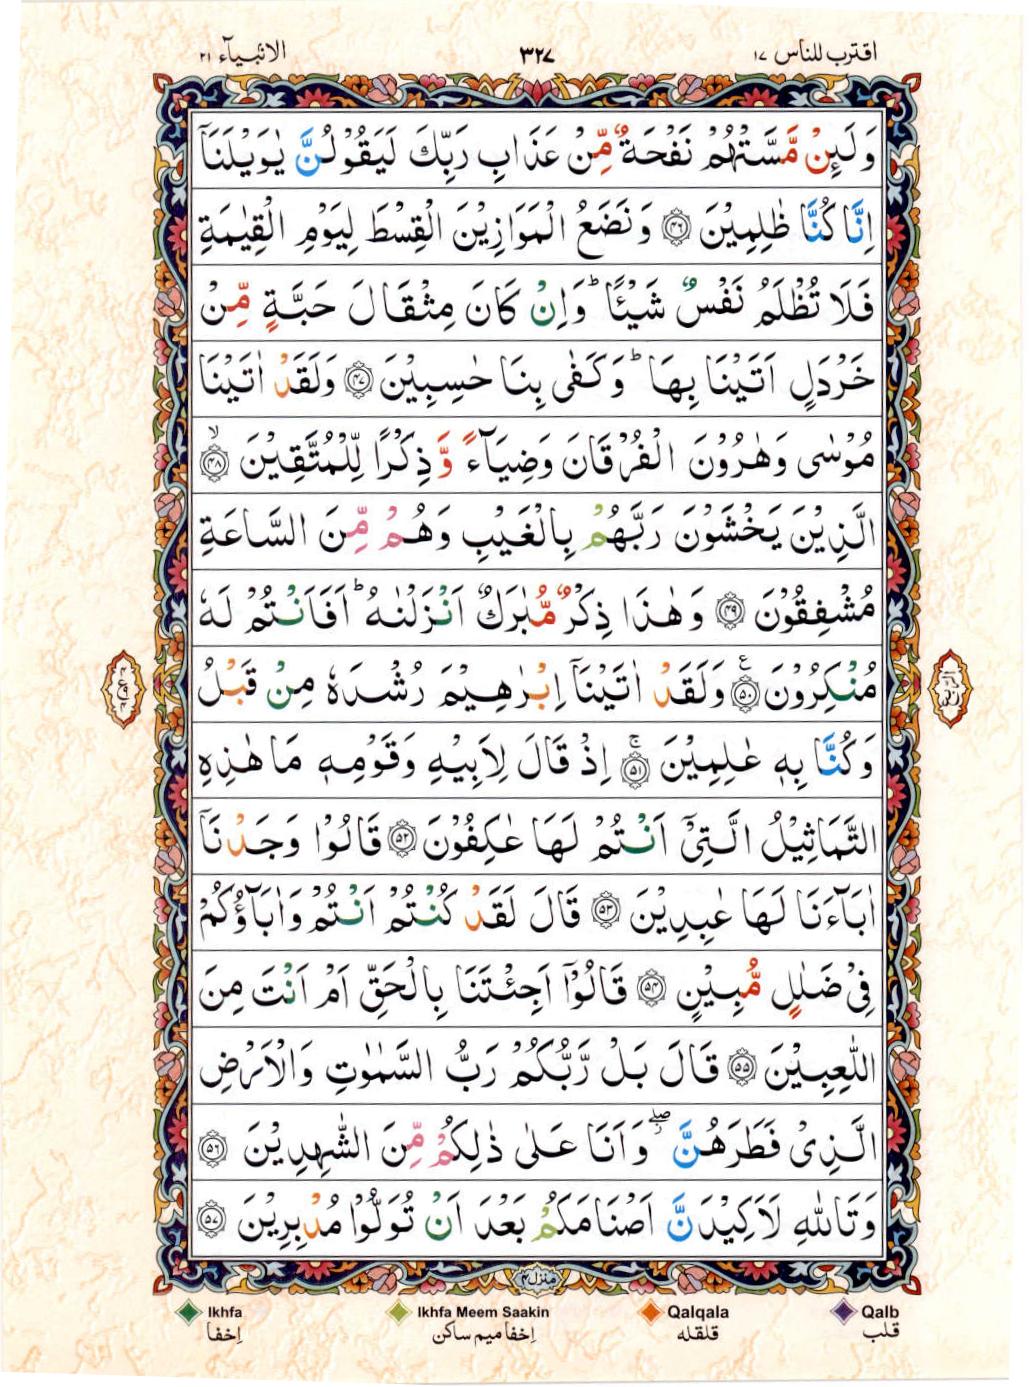 اقترب للناس ١٧
٣٢٧
الانبیآء ٢١
وَلَئِنْ مَّسَّتْهُمْ نَفْحَةٌ مِّنْ عَذَابِ رَبِّكَ لَيَقُوْلُنَّ يٰوَيْلَنَاۤ
اِنَّا كُنَّا ظٰلِمِيْنَ ۝۴۶ وَنَضَعُ الْمَوَازِيْنَ الْقِسْطَ لِيَوْمِ الْقِيٰمَةِ
فَلَا تُظْلَمُ نَفْسٌ شَيْـًٔا ؕ وَاِنْ كَانَ مِثْقَالَ حَبَّةٍ مِّنْ
خَرْدَلٍ اَتَيْنَا بِهَا ؕ وَكَفٰى بِنَا حٰسِبِيْنَ ۝۴۷ وَلَقَدْ اٰتَيْنَا
مُوْسٰى وَهٰرُوْنَ الْفُرْقَانَ وَضِيَآءً وَّذِكْرًا لِّلْمُتَّقِيْنَ ۝۴۸ ۙ
الَّذِيْنَ يَخْشَوْنَ رَبَّهُمْ بِالْغَيْبِ وَهُمْ مِّنَ السَّاعَةِ
مُشْفِقُوْنَ ۝۴۹ وَهٰذَا ذِكْرٌ مُّبٰرَكٌ اَنْزَلْنٰهُ ؕ اَفَاَنْتُمْ لَهٗ
مُنْكِرُوْنَ ۝۵۰ ع وَلَقَدْ اٰتَيْنَاۤ اِبْرٰهِيْمَ رُشْدَهٗ مِنْ قَبْلُ
وَكُنَّا بِهٖ عٰلِمِيْنَ ۝۵۱ ۚ اِذْ قَالَ لِاَبِيْهِ وَقَوْمِهٖ مَا هٰذِهِ
التَّمَاثِيْلُ الَّتِيْۤ اَنْتُمْ لَهَا عٰكِفُوْنَ ۝۵۲ قَالُوْا وَجَدْنَاۤ
اٰبَآءَنَا لَهَا عٰبِدِيْنَ ۝۵۳ قَالَ لَقَدْ كُنْتُمْ اَنْتُمْ وَاٰبَآؤُكُمْ
فِيْ ضَلٰلٍ مُّبِيْنٍ ۝۵۴ قَالُوْۤا اَجِئْتَنَا بِالْحَقِّ اَمْ اَنْتَ مِنَ
اللّٰعِبِيْنَ ۝۵۵ قَالَ بَلْ رَّبُّكُمْ رَبُّ السَّمٰوٰتِ وَالْاَرْضِ
الَّذِيْ فَطَرَهُنَّ ۖ وَاَنَا عَلٰى ذٰلِكُمْ مِّنَ الشّٰهِدِيْنَ ۝۵۶
وَتَاللّٰهِ لَاَكِيْدَنَّ اَصْنَامَكُمْ بَعْدَ اَنْ تُوَلُّوْا مُدْبِرِيْنَ ۝۵۷
منزل ۴
Ikhfa
Ikhfa Meem Saakin
Qalqala
Qalb
اِخفا
اِخفا میم ساکن
قلقله
قلب